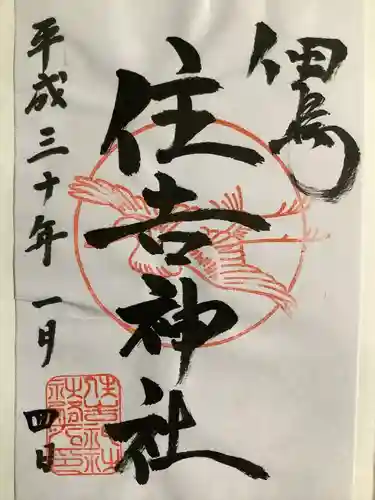 佃島
住吉神社
平成三十年 一月 四日
住吉神社